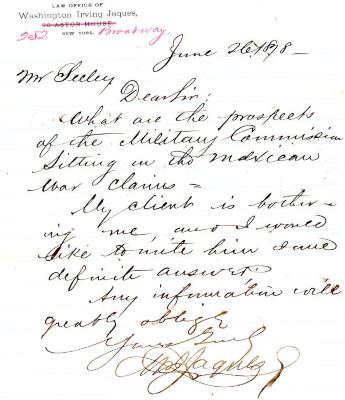 LAW OFFICE OF
Washington Irving Jaques,
70 ASTOR HOUSE,
252 NEW YORK. Broadway
June 26, 1878 -
Mr Seeley
Dear Sir:
What are the prospects
of the Military Commission
Sitting on the Mexican
War claims =
My client is bother =
ing me, and I would
like to write him some
definite answer.
Any information will
greatly oblige
Yours Truly
W I Jaques